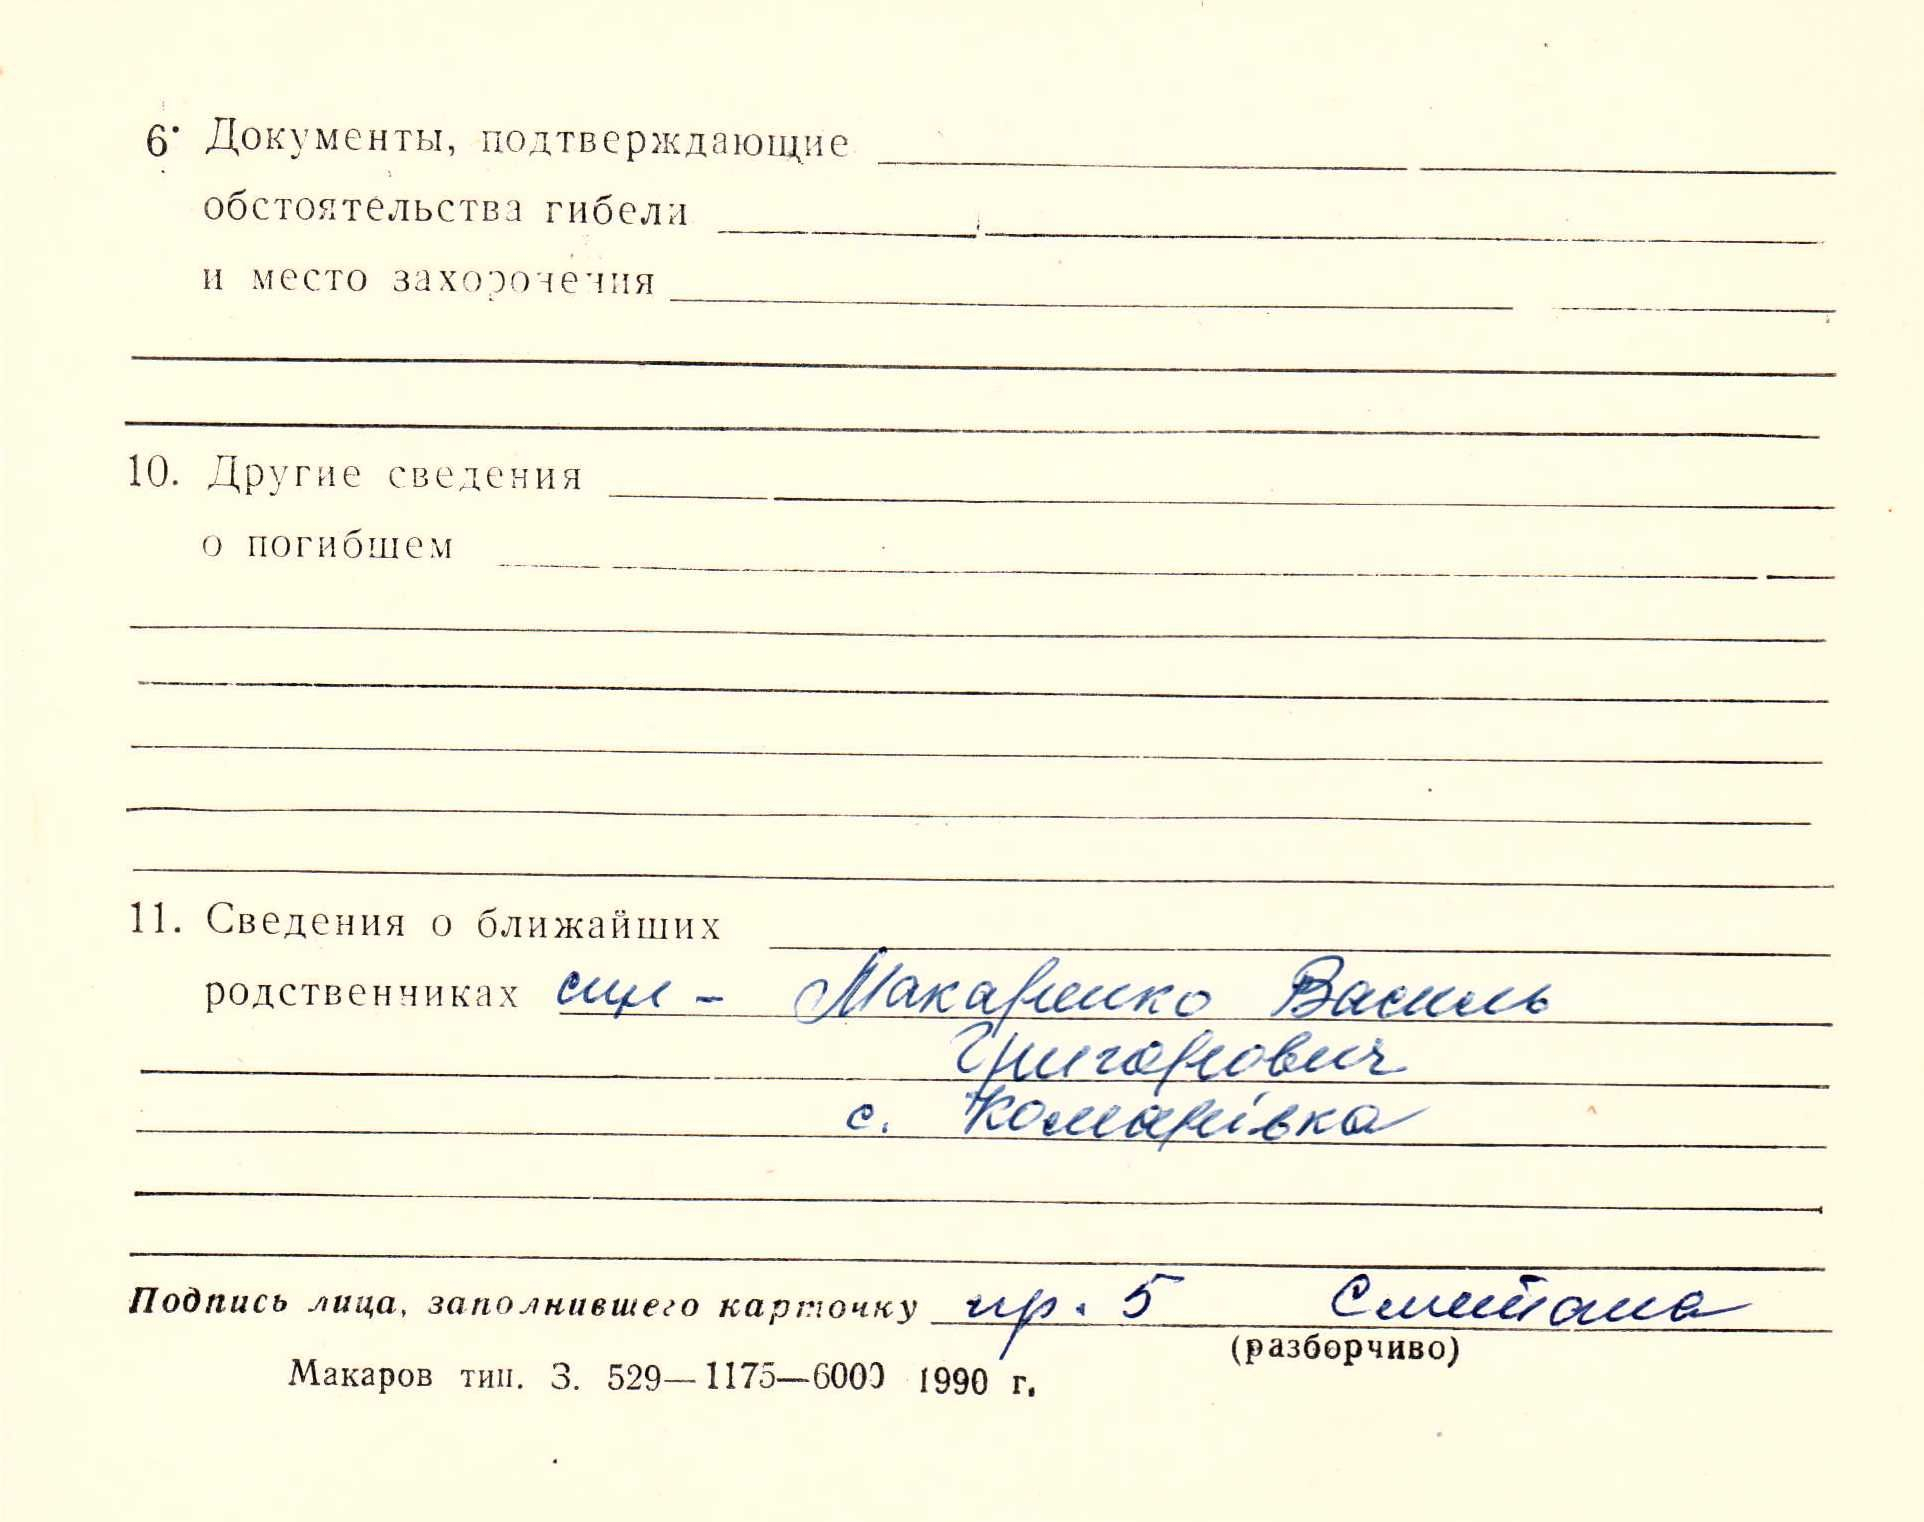 6. Документы, подтверждающие
обстоятельства гибели
и место захоронения
10. Другие сведения
о погибшем
11. Сведения о ближайших
родственниках син - Макаренко Василь
Григорович
с. Комарівка
Подпись лица, заполнившего карточку пр. 5 Сметана
(разборчиво)
Макаров тип. З. 529—1175—6000 1990 г.